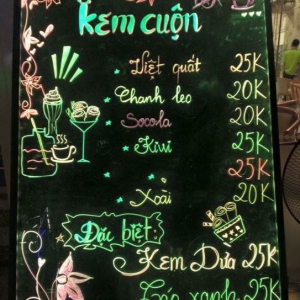 kem cuộn
Việt quất 25K
Chanh leo 20K
Socola 20K
Kiwi 25K
25K
Xoài 20K
Đặc biệt:
Kem Dừa 25K
Táo xanh 25K